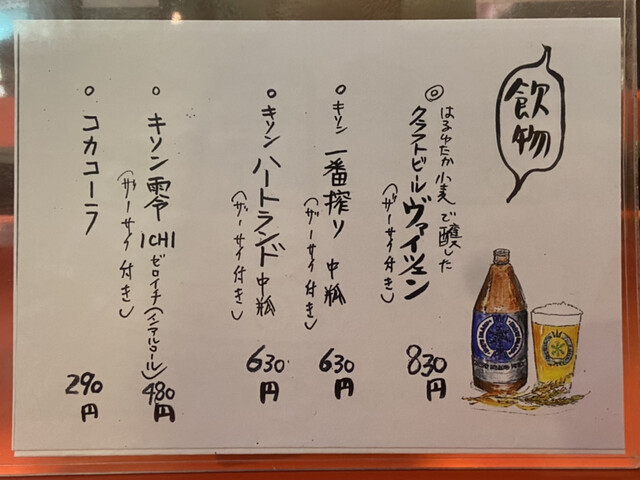 飲物
◎ はるゆたか小麦で醸した
クラフトビール ヴァイツェン
(ザーサイ付き)
830円
○ キリン 一番搾り 中瓶
(ザーサイ付き)
630円
○ キリン ハートランド 中瓶
(ザーサイ付き)
630円
○ キリン 零 ICHI ゼロイチ(ノンアルコール)
(ザーサイ付き)
480円
○ コカコーラ
290円